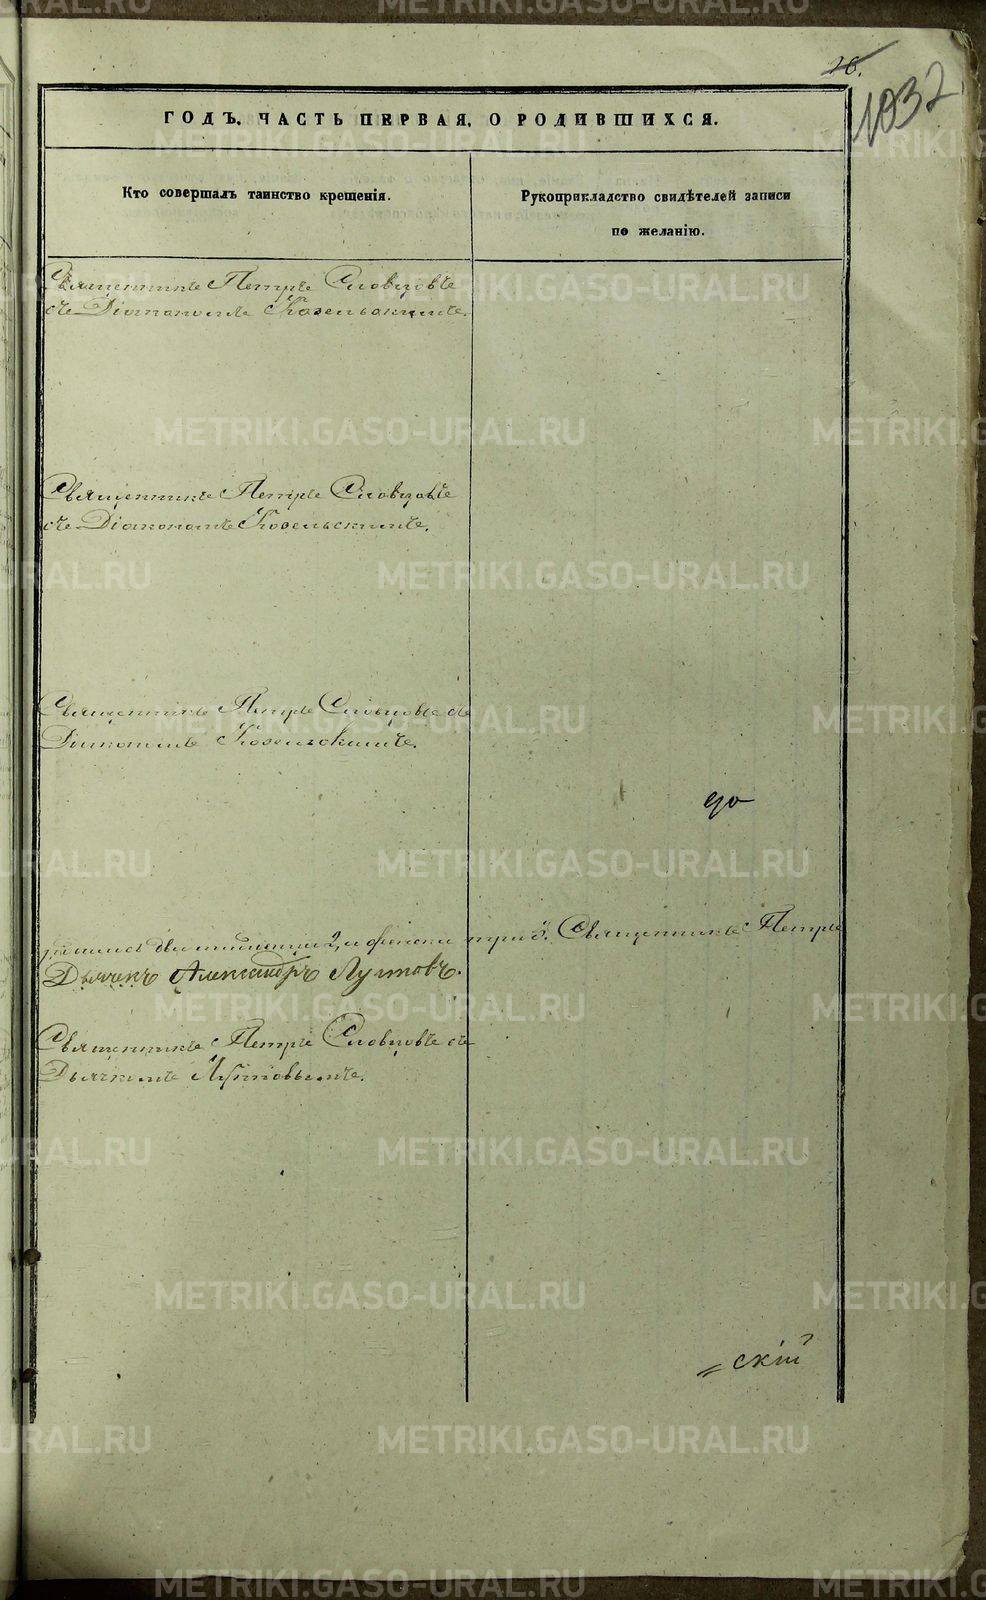 26.
1032
ГОДЪ. ЧАСТЬ ПЕРВАЯ, О РОДИВШИХСЯ.
Кто совершалъ таинство крещенія.
Рукоприкладство свидѣтелей записи
по желанію.
Священникъ Петръ Словцовъ
съ Діакономъ Козельскимъ.
Священникъ Петръ Словцовъ
съ Діакономъ Козельскимъ.
Священникъ Петръ Словцовъ съ
Діакономъ Козельскимъ.
до
три 3. Священникъ Петръ
Дьячекъ Александръ Лутковъ.
Священникъ Петръ Словцовъ съ
Дьячкомъ
скій
METRIKI.GASO-URAL.RU